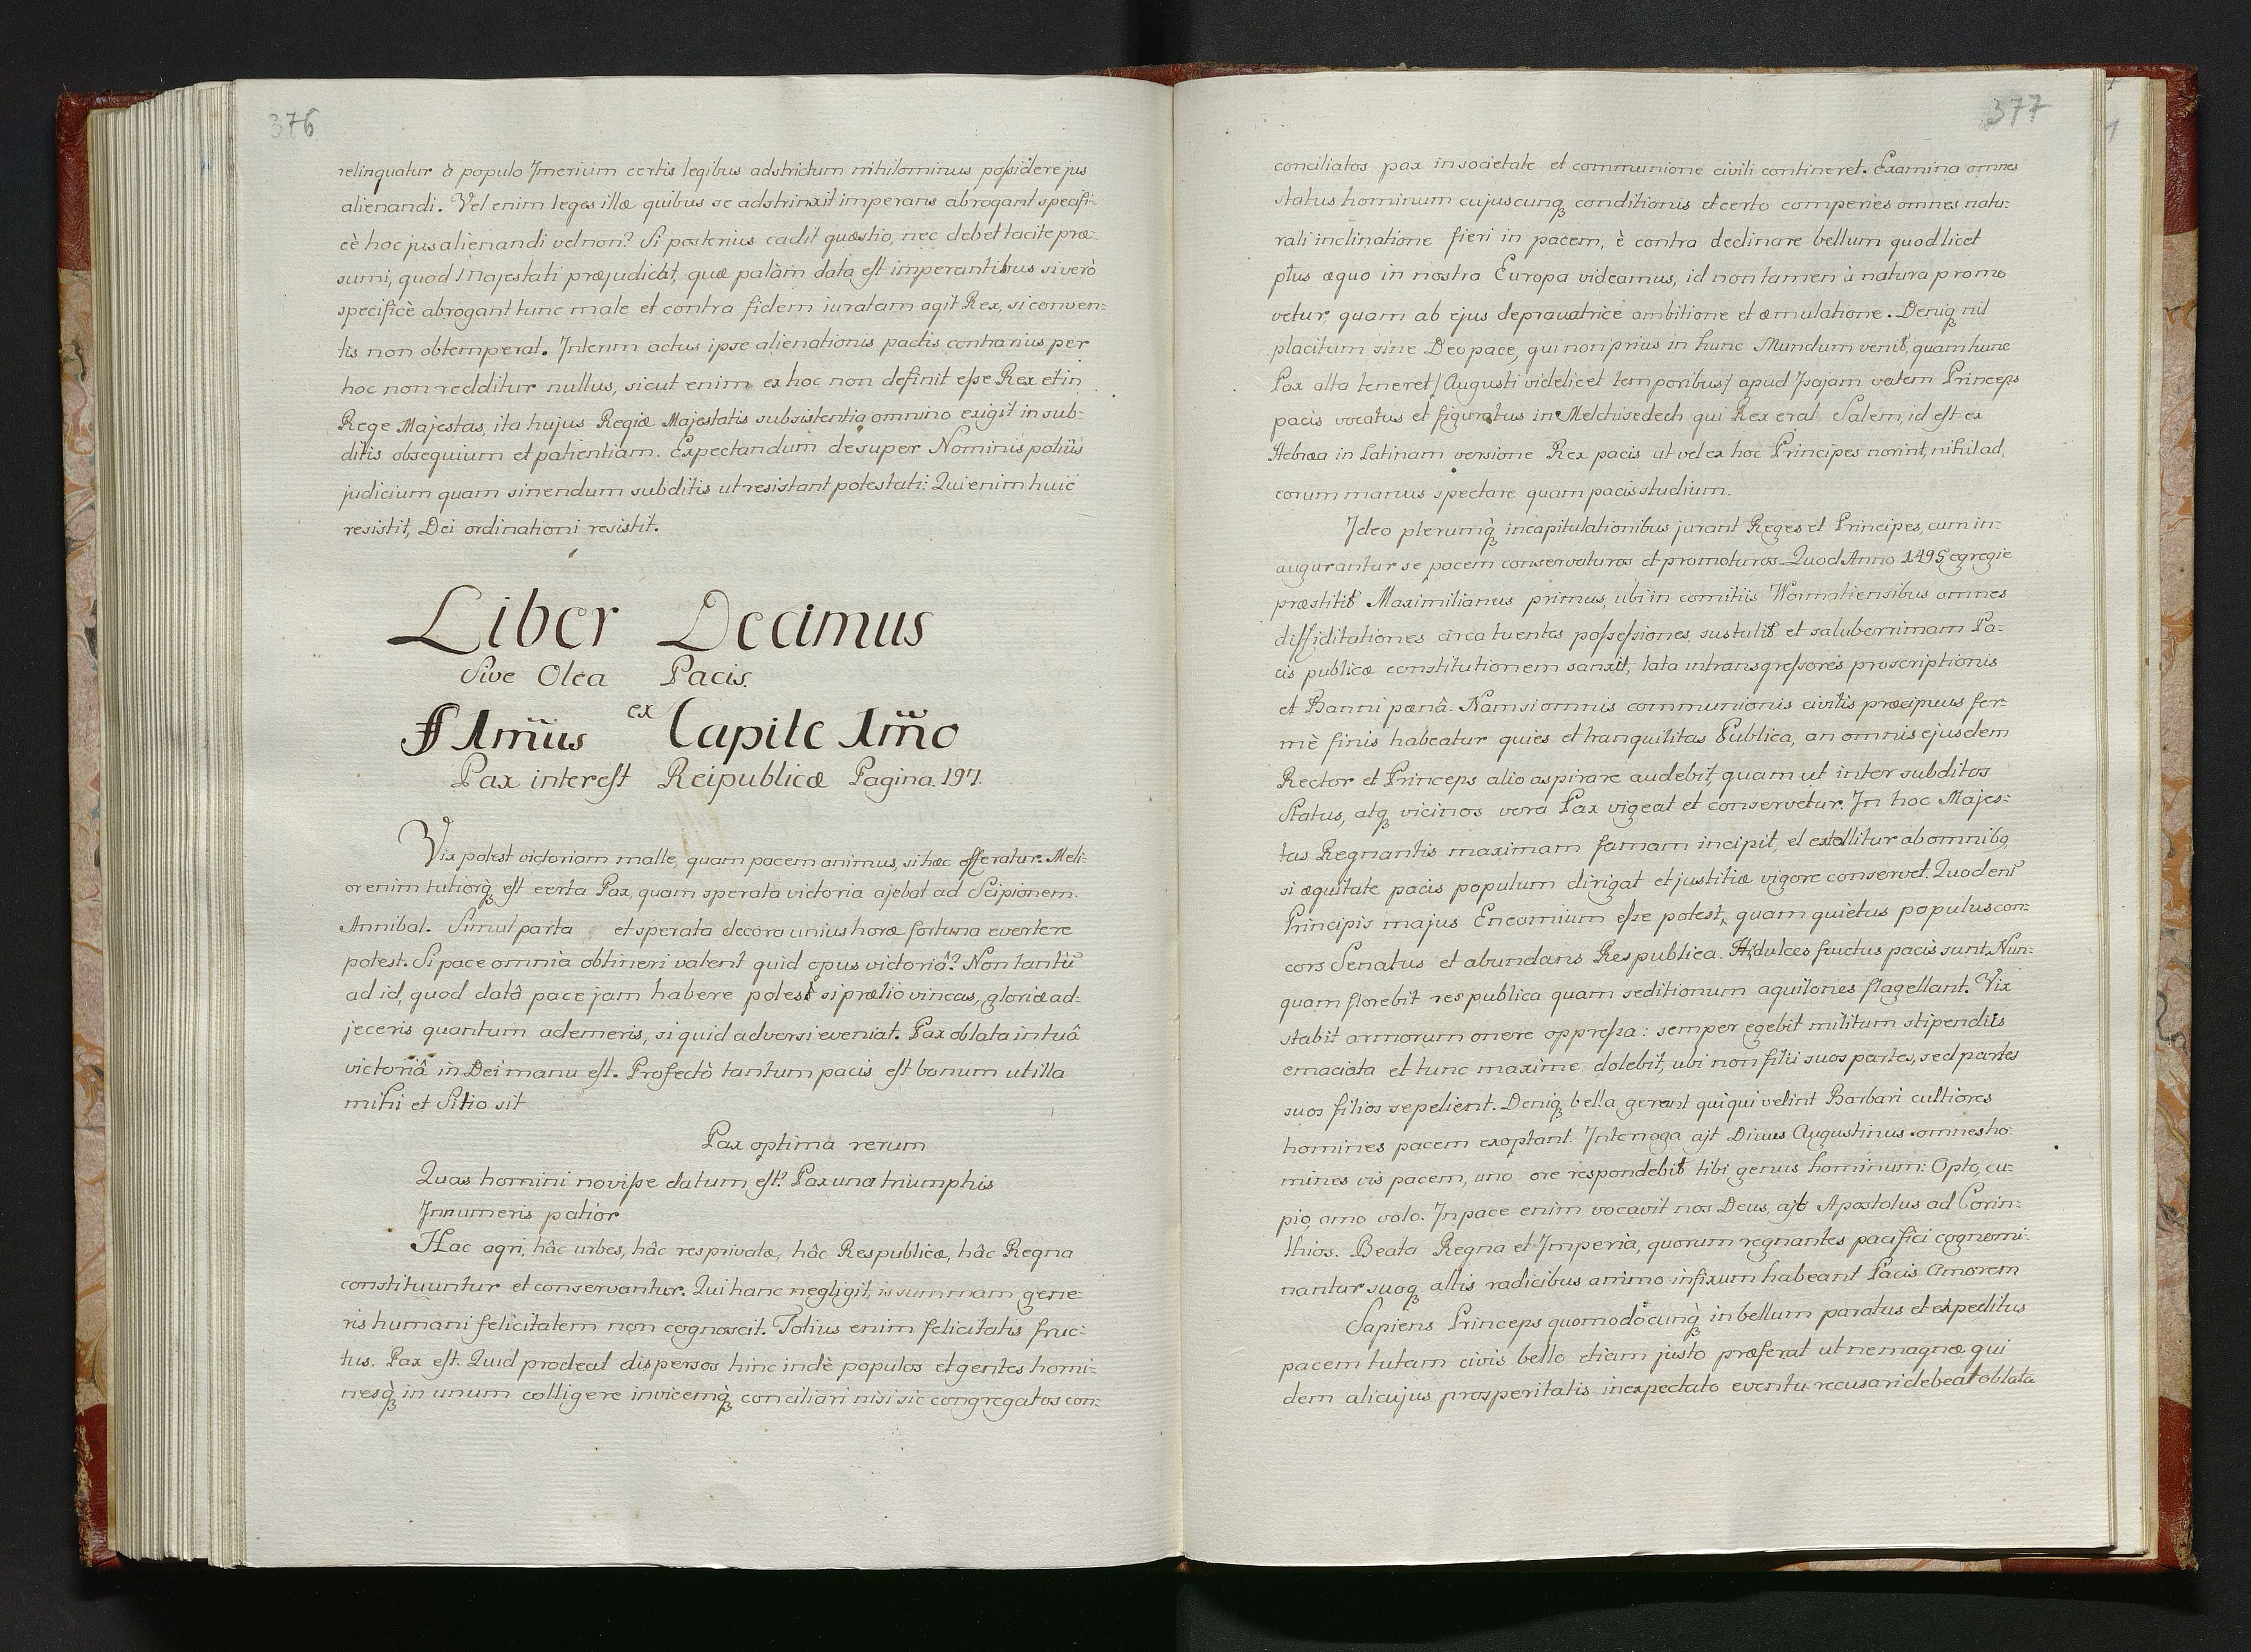 376
relinquatur à populo Jmerium certis legibus adstrictum nihilominus possidere jus
alienandi. Vel enim leges illæ quibus se adstrinxit imperans abrogant specifi-
cè hoc jus alienandi vel non? Si posterius cadit quæstio, nec debet tacite præ-
sumi, quod Majestati præjudicat, quæ palàm data est imperantibus si verò
specificè abrogant tunc male et contra fidem iuratam agit Rex, si conven-
tis non obtemperat. Interim actus ipse alienationis pactis contrarius per
hoc non redditur nullus, sicut enim ex hoc non definit esse Rex et in
Rege Majestas, ita hujus Regiæ Majestatis subsistentia omnino exigit in sub-
ditis obsequium et patientiam. Expectandum desuper Nominis potiùs
judicium quam sinendum subditis ut resistant potestati: Qui enim huic
resistit, Dei ordinationi resistit.
Liber Decimus
Sive Olea Pacis.
§ 1mus ex Capite 1mo
Pax interest Reipublicæ Pagina. 197.
Vix potest victoriam malle, quam pacem animus, si hæc offeratur. Meli-
or enim tutiorq3 est certa Pax, quam sperata victoria ajebat ad Scipionem.
Annibal. Simul parta et sperata decora unius horæ fortuna evertere
potest. Si pace omnia obtineri valent quid opus victoriâ? Non tantũ
ad id, quod datâ pace jam habere potest si prælio vincas, gloriæ ad-
jeceris quantum ademeris, si quid adversi eveniat. Pax oblata in tuâ
victoriâ in Dei manu est. Profectò tantum pacis est bonum ut illa
mihi et Silio sit
Pax optima rerum
Quas homini novisse datum est? Pax una triumphis
Innumeris patior
Hac agri, hâc urbes, hâc res privatæ, hâc Respublicæ, hâc Regna
constituuntur et conservantur. Qui hanc negligit, is summam gene-
ris humani felicitatem non cognoscit. Totius enim felicitatis fruc-
tus. Pax est. Quid prodeat dispersos hinc indè populos et gentes homi-
nesq3 in unum colligere invicemq3 conciliari nisi sic congregatos con-
377
conciliatos pax in societate et communione civili contineret. Examina omnes
status hominum cujuscunq3 conditionis et certo comperies omnes natu-
rali inclinatione fieri in pacem, è contra declinare bellum quod licet
plus æquo in nostra Europa videamus, id non tamen à natura promo
vetur, quam ab ejus depravatrice ambitione et æmulatione. Deniq3 nil
placitum sine Deo pace, qui non prius in hunc Mundum venit, quam hunc
Pax alta teneret/ Augusti videlicet temporibus/ apud Isajam vatem Princeps
pacis vocatus et figuratus in Melchisedech qui Rex erat Salem, id est ex
Hebræa in Latinam versione Rex pacis ut vel ex hoc Principes norint, nihil ad,
eorum manus spectare quam pacis studium.
Ideo plerumq3 in capitulationibus jurant Reges et Principes, cum in-
augurantur se pacem conservaturos et promoturos. Quod Anno 1495 egregie
præstitit Maximilianus primus, ubi in comitiis Wormatiensibus omnes
diffiditationes circa tuentas possessiones, sustulit et saluberrimam Pa-
cis publicæ constitutionem sanxit, lata in transgressores proscriptionis
et Banni pænâ. Nam si omnis communionis civilis præcipuus fer-
mè finis habeatur quies et tranquilitas Publica, an omnis ejusdem
Rector et Princeps alio aspirare audebit, quam ut inter subditos
Status, atq3 vicinos vera Pax vigeat et conservetur. In hoc Majes-
tas Regnantis maximam famam incipit, et extollitur ab omnib9
si æquitate pacis populum dirigat et justitiæ vigore conservet. Quod eni
Principis majus Encomium esse potest, quam quietus populus con-
cors Senatus et abundans Respublica. Hi dulces fructus pacis sunt. Nun-
quam florebit respublica quam seditionum aquilones flagellant. Vix
stabit armorum onere oppressa: semper egebit militum stipendiis
emaciata et tunc maxime dolebit, ubi non filii suos partes, sed partes
suos filios sepelient. Deniq3 bella gerant quiqui velint Barbari cultiores
homines pacem exoptant. Interroga ajt Divus Augustinus omnes ho-
mines vis pacem, uno ore respondebit tibi genus hominum: Opto, cu-
pio, amo volo. In pace enim vocavit nos Deus, ajt Apostolus ad Corin-
thios. Beata Regna et Imperia, quorum regnantes pacifici cognomi-
nantur suoq3 altis radicibus animo infixum habeant Pacis Amorem
Sapiens Princeps quomodocunq3 in bellum paratus et expeditus
pacem tutam civis bello etiam justo præferat ut ne magnæ qui
dem alicujus prosperitatis inexpectato eventu recusari debeat oblata